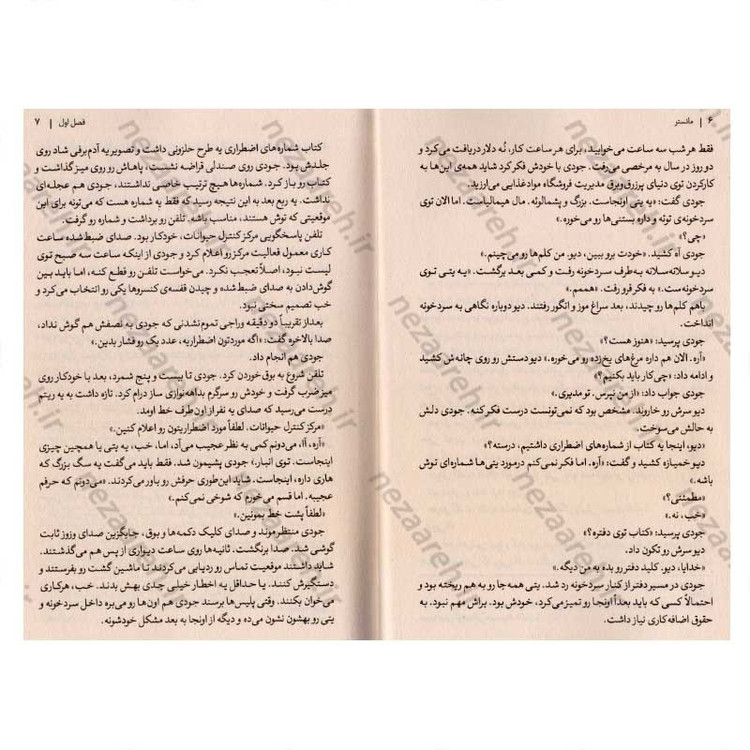 ۶ | مانستر
فقط هر شب سه ساعت می‌خوابید، برای هر ساعت کار، نُه دلار دریافت می‌کرد و
دو روز در سال به مرخصی می‌رفت. جودی با خودش فکر کرد شاید همه‌ی این‌ها به
کارکردن توی دنیای پرزرق‌وبرق مدیریت فروشگاه موادغذایی می‌ارزید.
جودی گفت: «یه یتی اونجاست. بزرگ و پشمالوئه. مال هیمالیاست. الان توی
سردخونه‌ی توئه و داره بستنی‌ها رو می‌خوره.»
«چی؟»
جودی آه کشید. «خودت برو ببین، دیو. من کلم‌ها رو می‌چینم.»
دیو سلانه‌سلانه به‌طرف سردخونه رفت و کمی بعد برگشت. «یه یتی توی
سردخونه‌ست.» به فکر فرو رفت. «هممم.»
باهم کلم‌ها رو چیدند، بعد سراغ موز و انگور رفتند. دیو دوباره نگاهی به سردخونه
انداخت.
جودی پرسید: «هنوز هست؟»
«آره. الان هم داره مرغ‌های یخ‌زده رو می‌خوره.» دیو دستش رو روی چانه‌ش کشید
و ادامه داد: «چی‌کار باید بکنیم؟»
جودی جواب داد: «از من نپرس. تو مدیری.»
دیو سرش رو خاروند. مشخص بود که نمی‌تونست درست فکر کنه. جودی دلش
به حالش می‌سوخت.
«دیو، اینجا یه کتاب از شماره‌های اضطراری داشتیم، درسته؟»
دیو خمیازه کشید و گفت: «آره. اما فکر نمی‌کنم درمورد یتی‌ها شماره‌ای توش
باشه.»
«مطمئنی؟»
«خب، نه.»
جودی پرسید: «کتاب توی دفتره؟»
دیو سرش رو تکون داد.
«خدایا، دیو. کلید دفتر رو بده به من دیگه.»
جودی در مسیر دفتر از کنار سردخونه رد شد. یتی همه‌جا رو به هم ریخته بود و
احتمالاً کسی که باید بعداً اونجا رو تمیز می‌کرد، خودش بود. براش مهم نبود. به
حقوق اضافه‌کاری نیاز داشت.
فصل اول | ۷
کتاب شماره‌های اضطراری یه طرح حلزونی داشت و تصویر یه آدم‌برفی شاد روی
جلدش بود. جودی روی صندلی قراضه نشست، پاهاش رو روی میز گذاشت و
کتاب رو باز کرد. شماره‌ها هیچ ترتیب خاصی نداشتند، جودی هم عجله‌ای
نداشت. یه ربع بعد به این نتیجه رسید که فقط یه شماره هست که می‌تونه برای این
موقعیتی که توش هستند، مناسب باشه. تلفن رو برداشت و شماره رو گرفت.
تلفن پاسخگویی مرکز کنترل حیوانات، خودکار بود. صدای ضبط‌شده ساعت
کاری معمول فعالیت مرکز رو اعلام کرد و جودی از اینکه ساعت سه صبح توی
لیست نبود، اصلاً تعجب نکرد. می‌خواست تلفن رو قطع کنه، اما باید بین
گوش‌دادن به صدای ضبط‌شده و چیدن قفسه‌ی کنسروها یکی رو انتخاب می‌کرد و
خب تصمیم سختی نبود.
بعد از تقریباً دو دقیقه وراجی تموم‌نشدنی که جودی به نصفش هم گوش نداد،
صدا بالاخره گفت: «اگه موردتون اضطراریه، عدد یک رو فشار بدین.»
جودی هم انجام داد.
تلفن شروع به بوق خوردن کرد. جودی تا بیست و پنج شمرد، بعد با خودکار روی
میز ضرب گرفت و خودش رو سرگرم بداهه‌نوازی ساز درام کرد. تازه داشت به یه ریتم
درست می‌رسید که صدای یه نفر از اون‌طرف خط اومد.
«مرکز کنترل حیوانات. لطفاً مورد اضطراریتون رو اعلام کنین.»
«آره، اُا. می‌دونم کمی به نظر عجیب می‌آد، اما، خب، یه یتی یا همچین چیزی
اینجاست. توی انبار.» جودی پشیمون شد. فقط باید می‌گفت یه سگ بزرگ که
هاری داره، اینجاست. شاید این‌طوری حرفش رو باور می‌کردند. «می‌دونم که حرفم
عجیبه. اما قسم می‌خورم که شوخی نمی‌کنم.»
«لطفاً پشت خط بمونین.»
جودی منتظر موند و صدای کلیک دکمه‌ها و بوق، جایگزین صدای وزوز ثابت
گوشی شد. صدا برنگشت. ثانیه‌ها روی ساعت دیواری از پس هم می‌گذشتند.
شاید داشتند موقعیت تماس رو ردیابی می‌کردند تا ماشین گشت رو بفرستند و
دستگیرش کنند. یا حداقل یه اخطار خیلی جدی بهش بدند. خب، هرکاری
می‌خوان بکنند. وقتی پلیس‌ها برسند جودی هم اون‌ها رو می‌بره داخل سردخونه و
یتی رو بهشون نشون می‌ده و دیگه از اونجا به بعد مشکل خودشونه.
nezaareh.ir